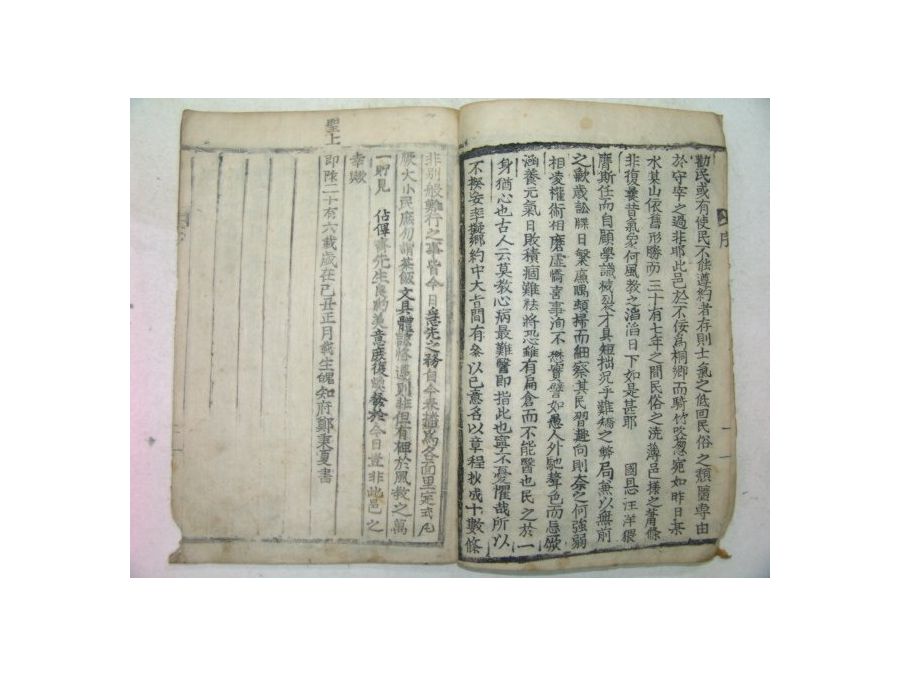 序
勸民或有使民不能遵約者存則士氣之低回民俗之頹醫專由
於守宰之過非耶此邑於不侫爲桐鄕而騎竹吹葱宛如昨日某
水某山依舊形勝而三十有七年之間民俗之洗薄邑樣之蕭條
非復曩昔氣象何風敎之滔滔日下如是甚耶 國恩汪洋猥
膺斯任而自顧學識裂才具短拙況乎難矯之弊局無以無前
之歉歲訟牒日繁應頻掃而細察其民習趣向則奈之何強弱
相凌權術相磨虛憍喜事洵不懋實譬如愚人外馳聲色而忘厥
涵養元氣日敗積痼難祛將恐雖有扁倉而不能醫也民之於一
身猶心也古人云莫敎心病最難醫卽指此也寧不憂懼哉所以
不揆安李鄕約中大旨間有參以己意名以章程抄成十數條
非別般難行之事皆今日急先之務自今爲各面里定式凡
厥大小民庶勿謂茶飯文具體遵則非但有裨於風敎之萬
一貯見 佔偠齋先生美意庶復煥發於今日豈非此邑之
幸歟
聖上
卽阼二十有六載歲在己丑正月哉生魄知府鄭東夏書